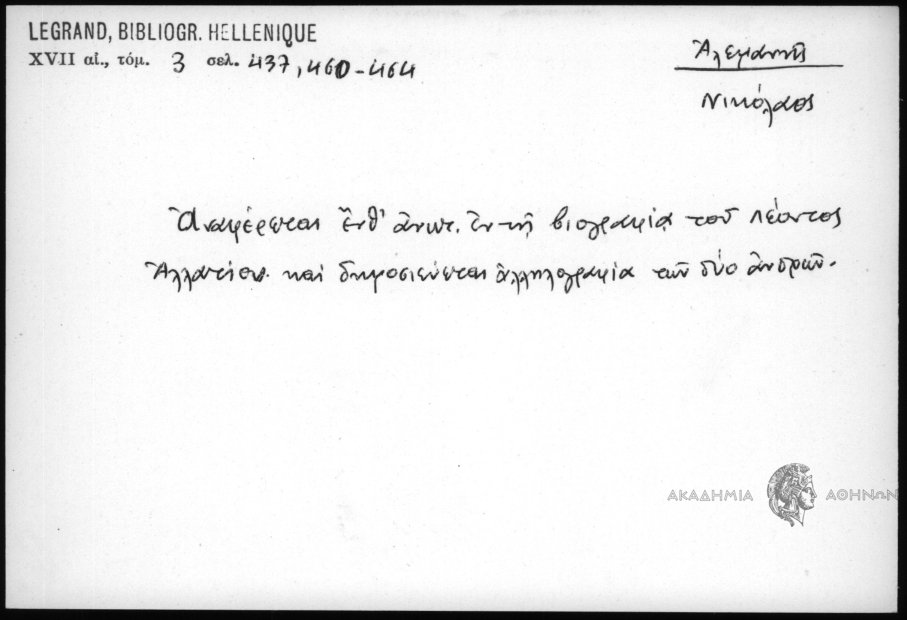 LEGRAND, BIBLIOGR. HELLENIQUE
XVII αἰ., τόμ. 3 σελ. 437, 460-464
Ἀλεμάννης
Νικόλαος
Ἀναφέρεται ἔνθ' ἀνωτ. ἐν τῇ βιογραφίᾳ τοῦ Λέοντος
Ἀλλατίου καὶ δημοσιεύεται ἀλληλογραφία τῶν δύο ἀνδρῶν.
ΑΚΑΔΗΜΙΑ ΑΘΗΝΩΝ